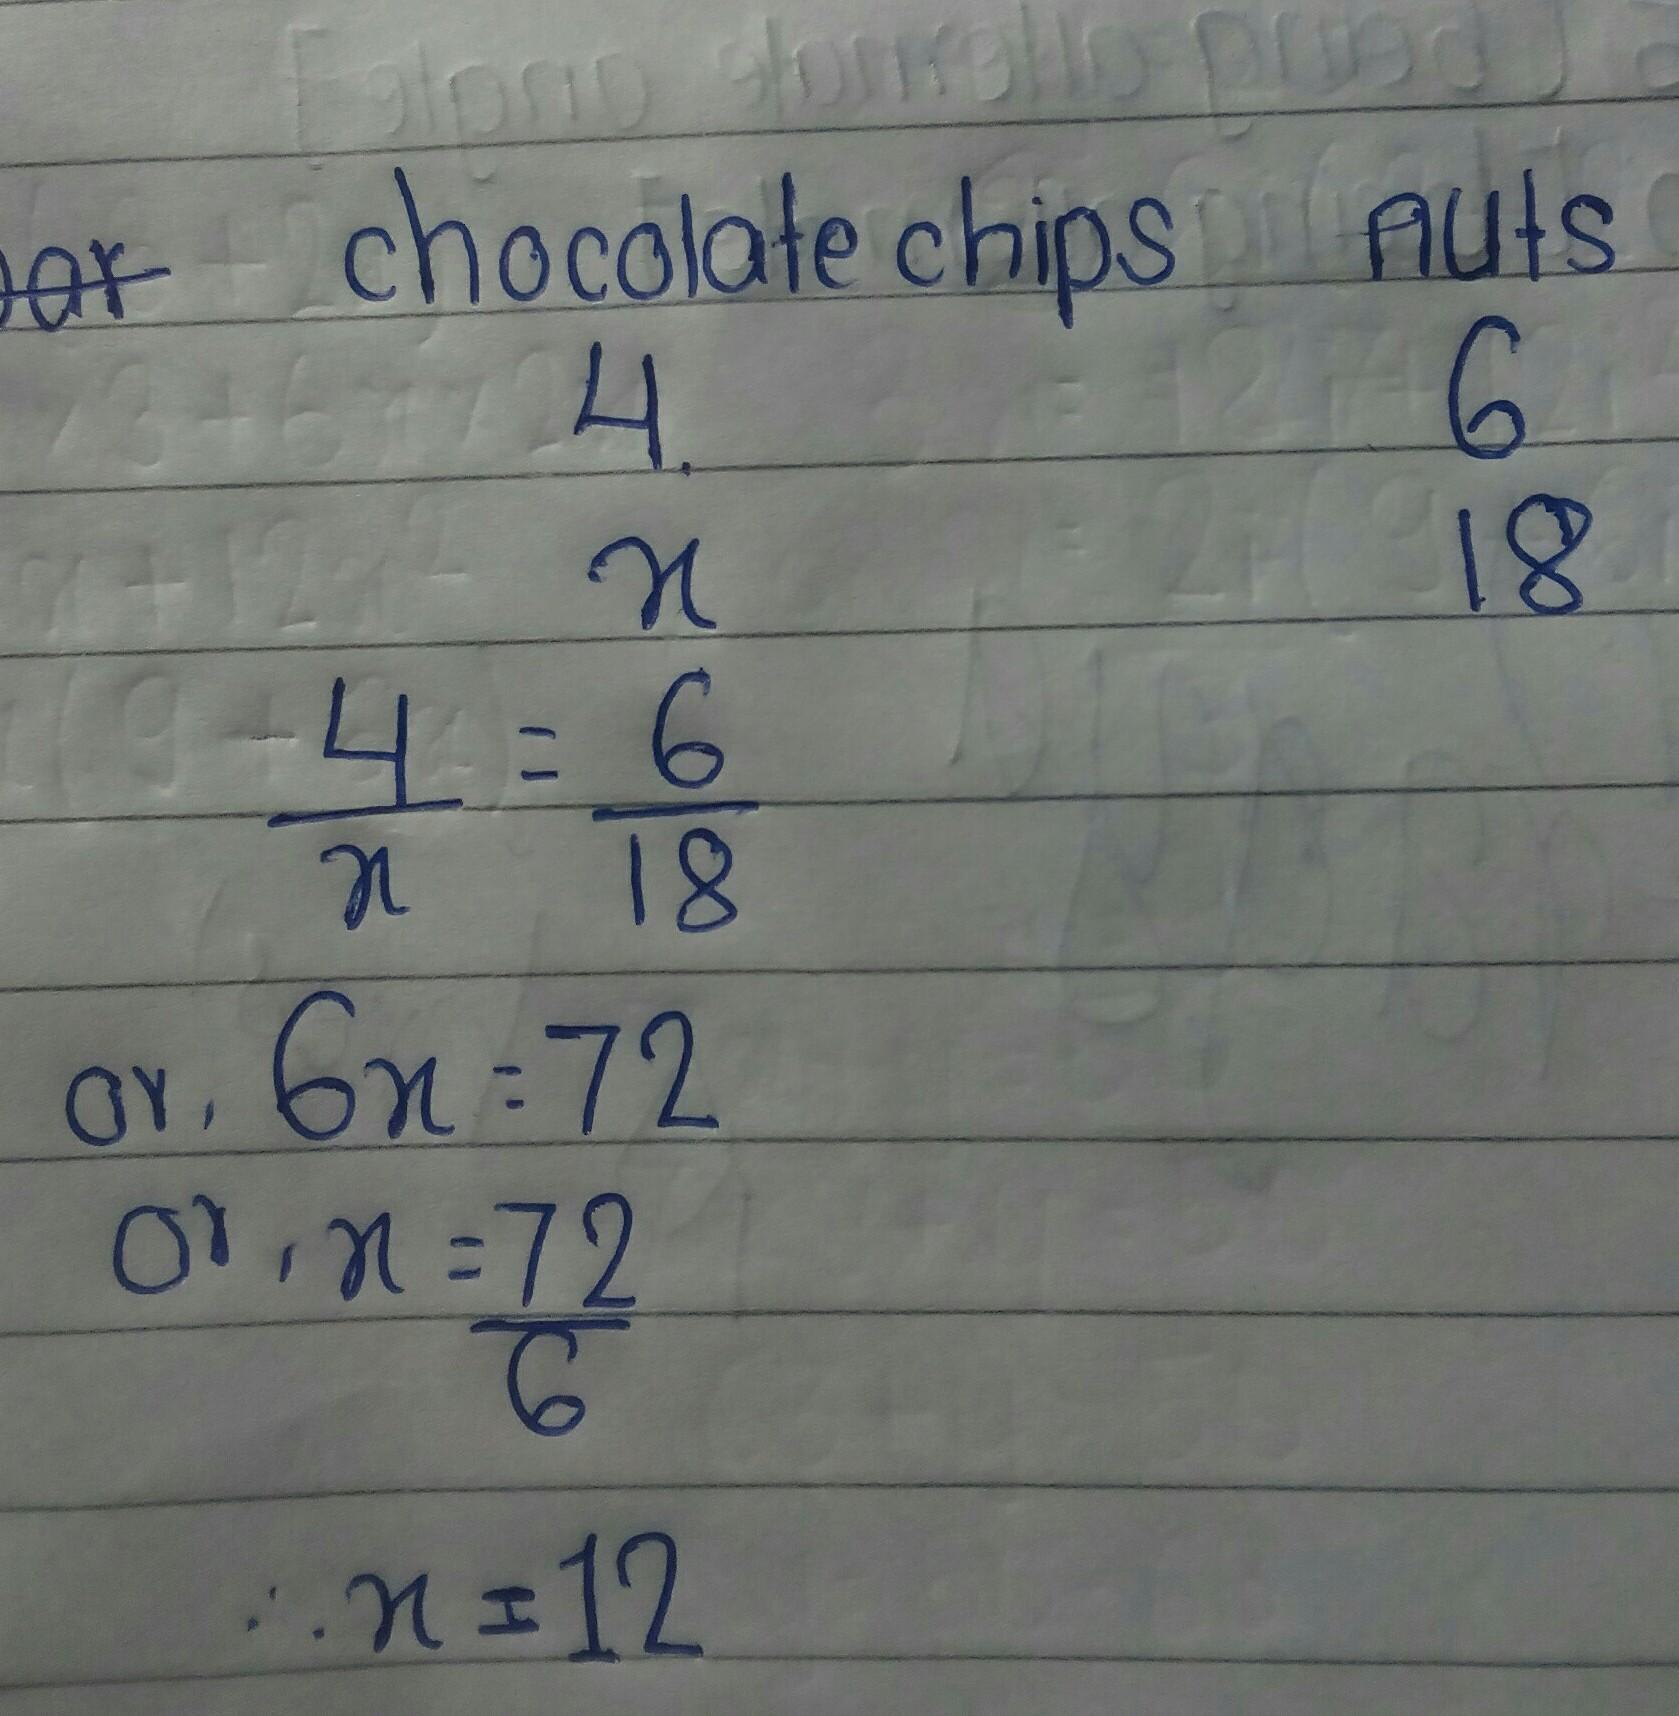 chocolate chips nuts
4. 6
x 18
4/x = 6/18
or, 6x = 72
or, x = 72/6
∴ x = 12